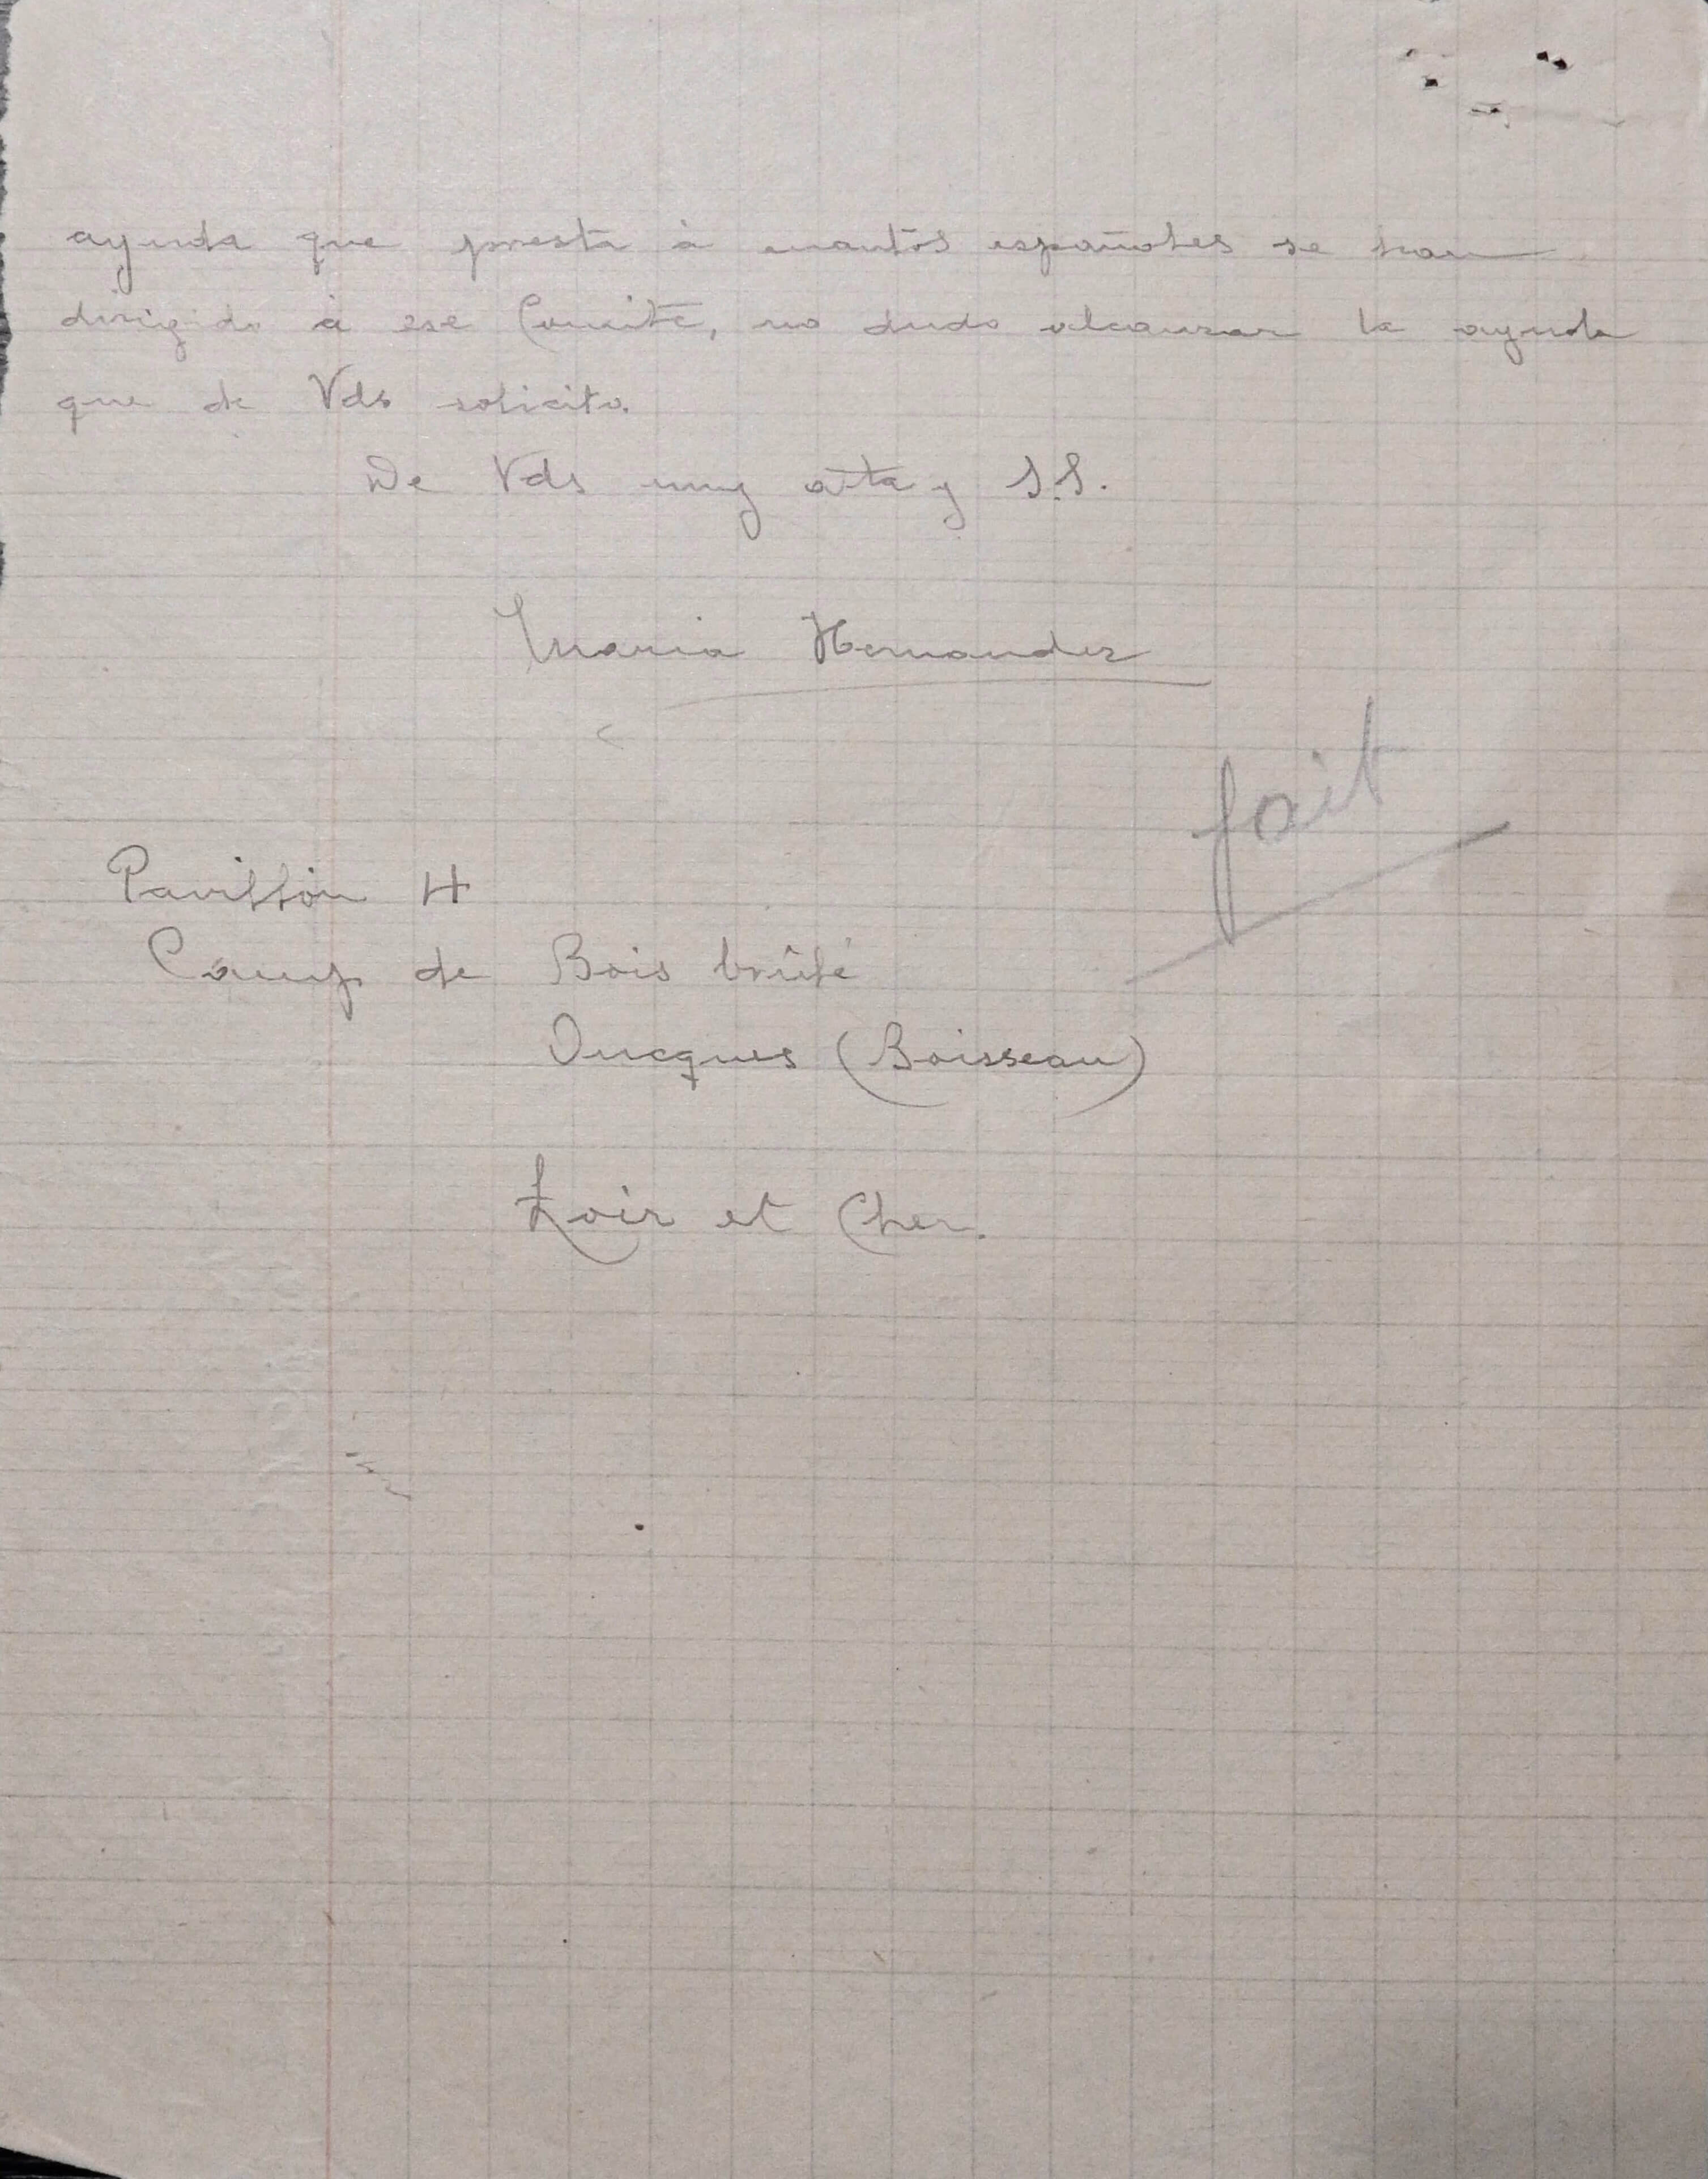 ayuda que presta à cuantos españoles se han
dirigido à ese Comité, no dudo alcanzar la ayuda
que de Vds solicito.
De Vds muy atta y S.S.
Maria Hernandez
fait
Pavillón H
Camp de Bois brûlé
Oucques (Boisseau)
Loir et Cher.